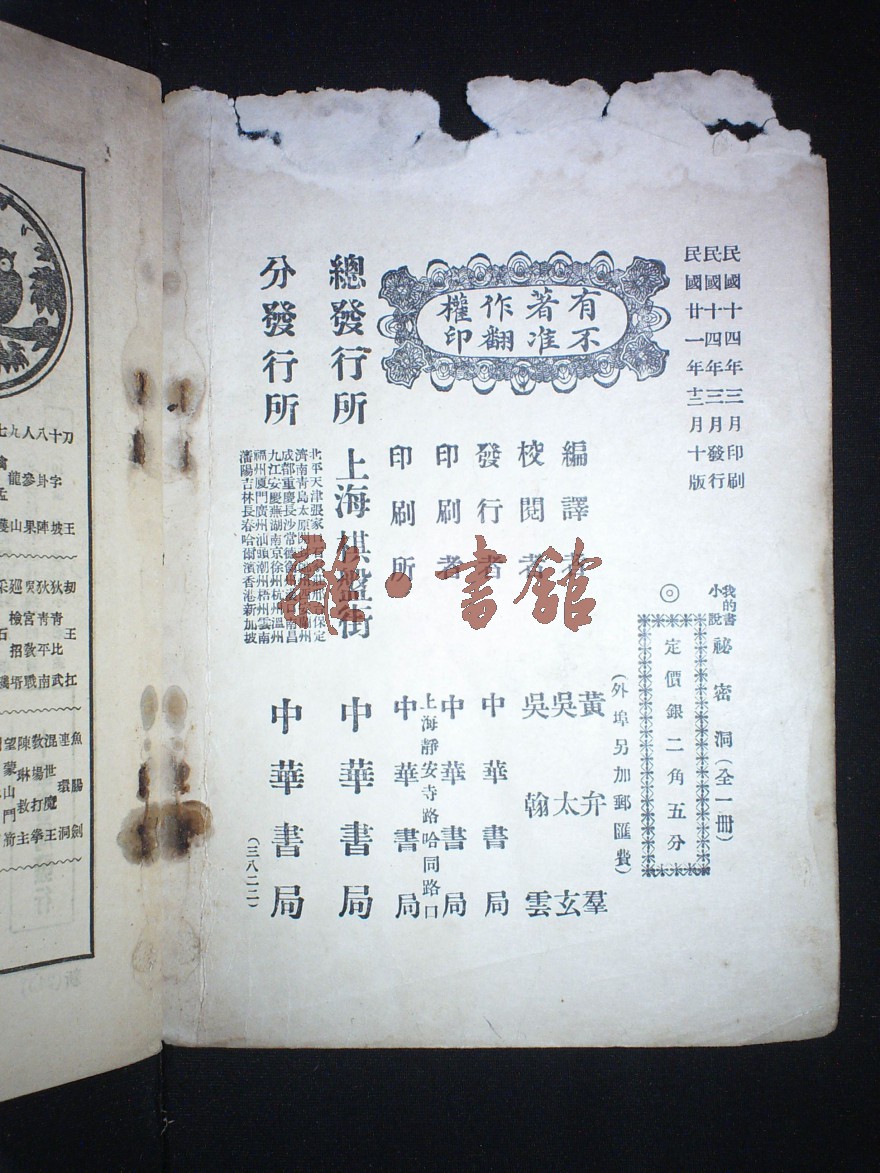 民國十四年三月印刷
民國十四年三月發行
民國廿一年十二月十版
我的書
小說
祕密洞(全一冊)
◎
定價銀二角五分
(外埠另加郵匯費)
有著作權
不准翻印
編譯者 黃弁羣
吳太玄
校閱者 吳翰雲
發行者 中華書局
印刷者 中華書局
上海靜安寺路哈同路口
印刷所 中華書局
總發行所 上海棋盤街 中華書局
分發行所
北平天津張家 保定
濟南青島太原 州
成都重慶長沙常德 南昌
九江安慶蕪湖南京徐州杭州溫州
福州廈門廣州汕頭潮州梧州雲南
瀋陽吉林長春哈爾濱香港新加坡
中華書局
(三八二二)
雜·書館
刀十八人九七
字卦參龍
王坡陣果山
劫狄狄吳巡采
青青宮檢
王 石
比平教招
扛武南戰塔
魚連混教陳望
世楊琳蒙
腸環 山
魔打教門
劍洞王拳主